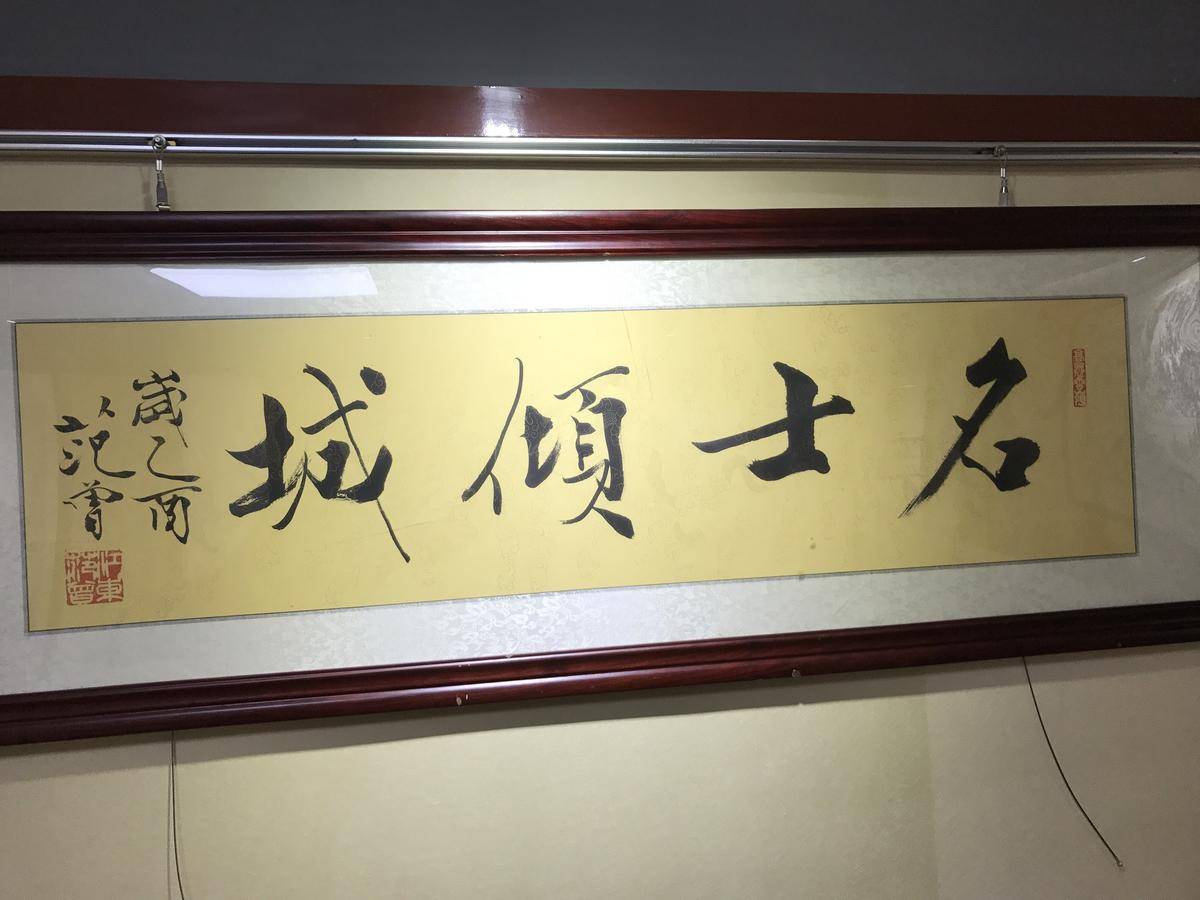 名士傾城
歲乙酉
范曾
江東范曾